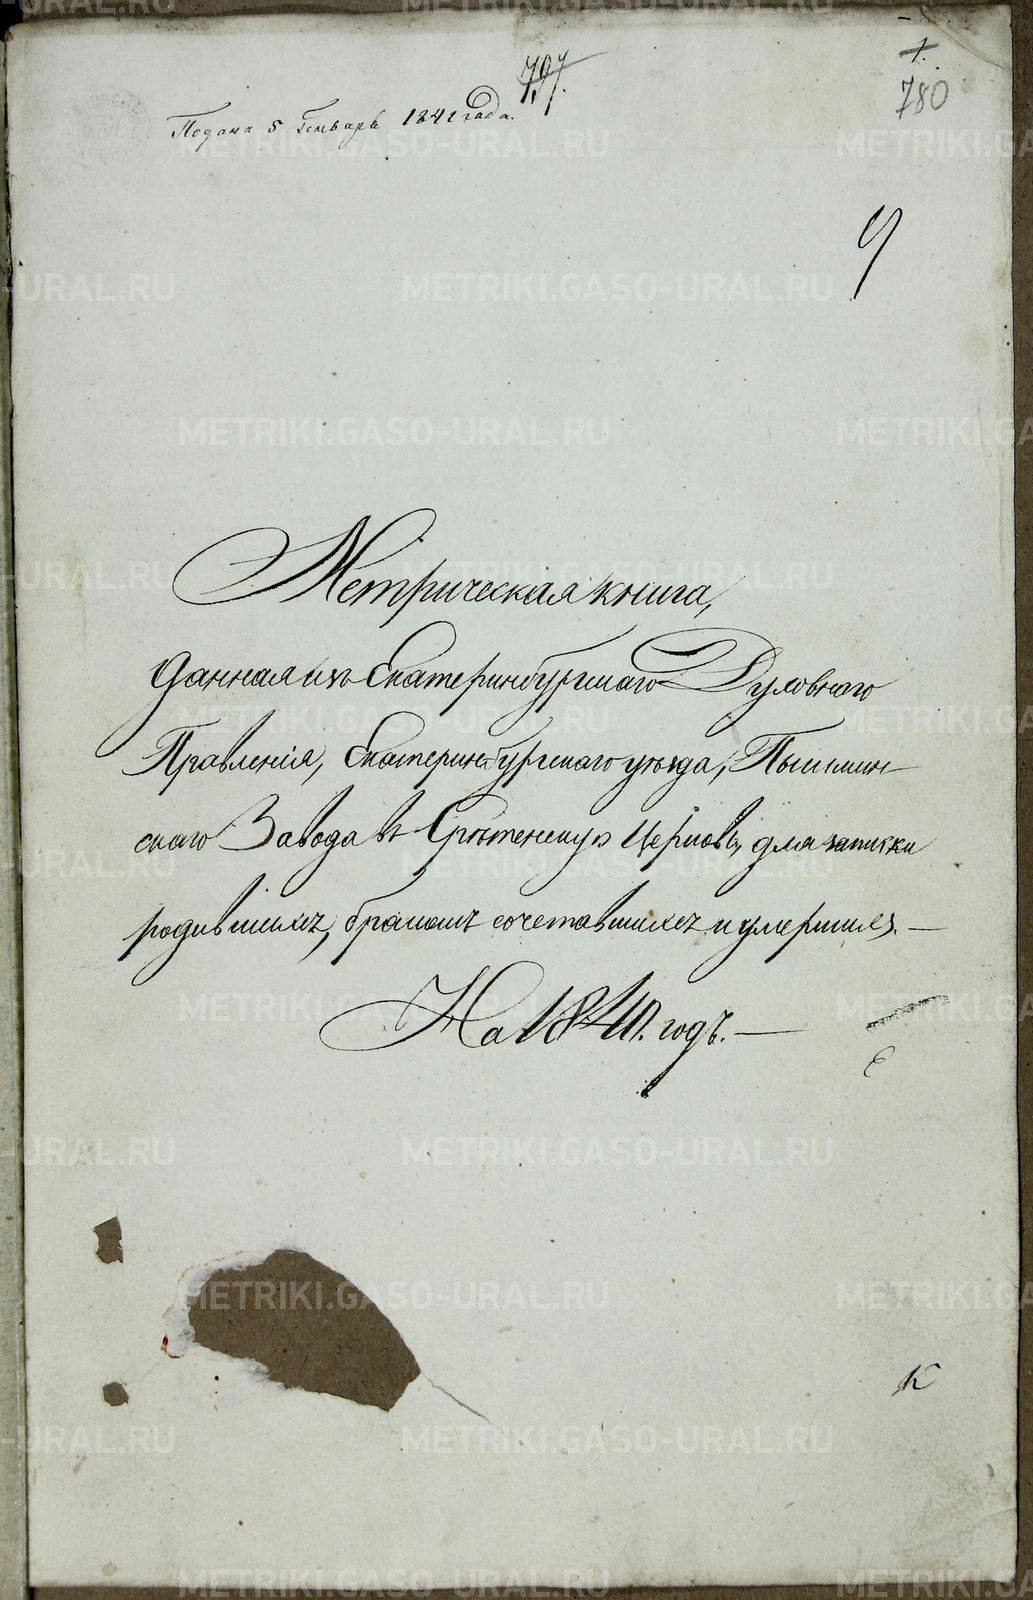 797.
1.
780
Подана 5 Генваря 1841 года.
Метрическая книга,
данная изъ Екатеринбургскаго Духовнаго
Правленія, Екатеринбургскаго уѣзда, Пышмин-
скаго Завода въ Срѣтенскую Церковь, для записки
родившихъ, бракомъ сочетавшихъ и умершихъ. —
На 1840. годъ. —
К
METRIKI.GASO-URAL.RU